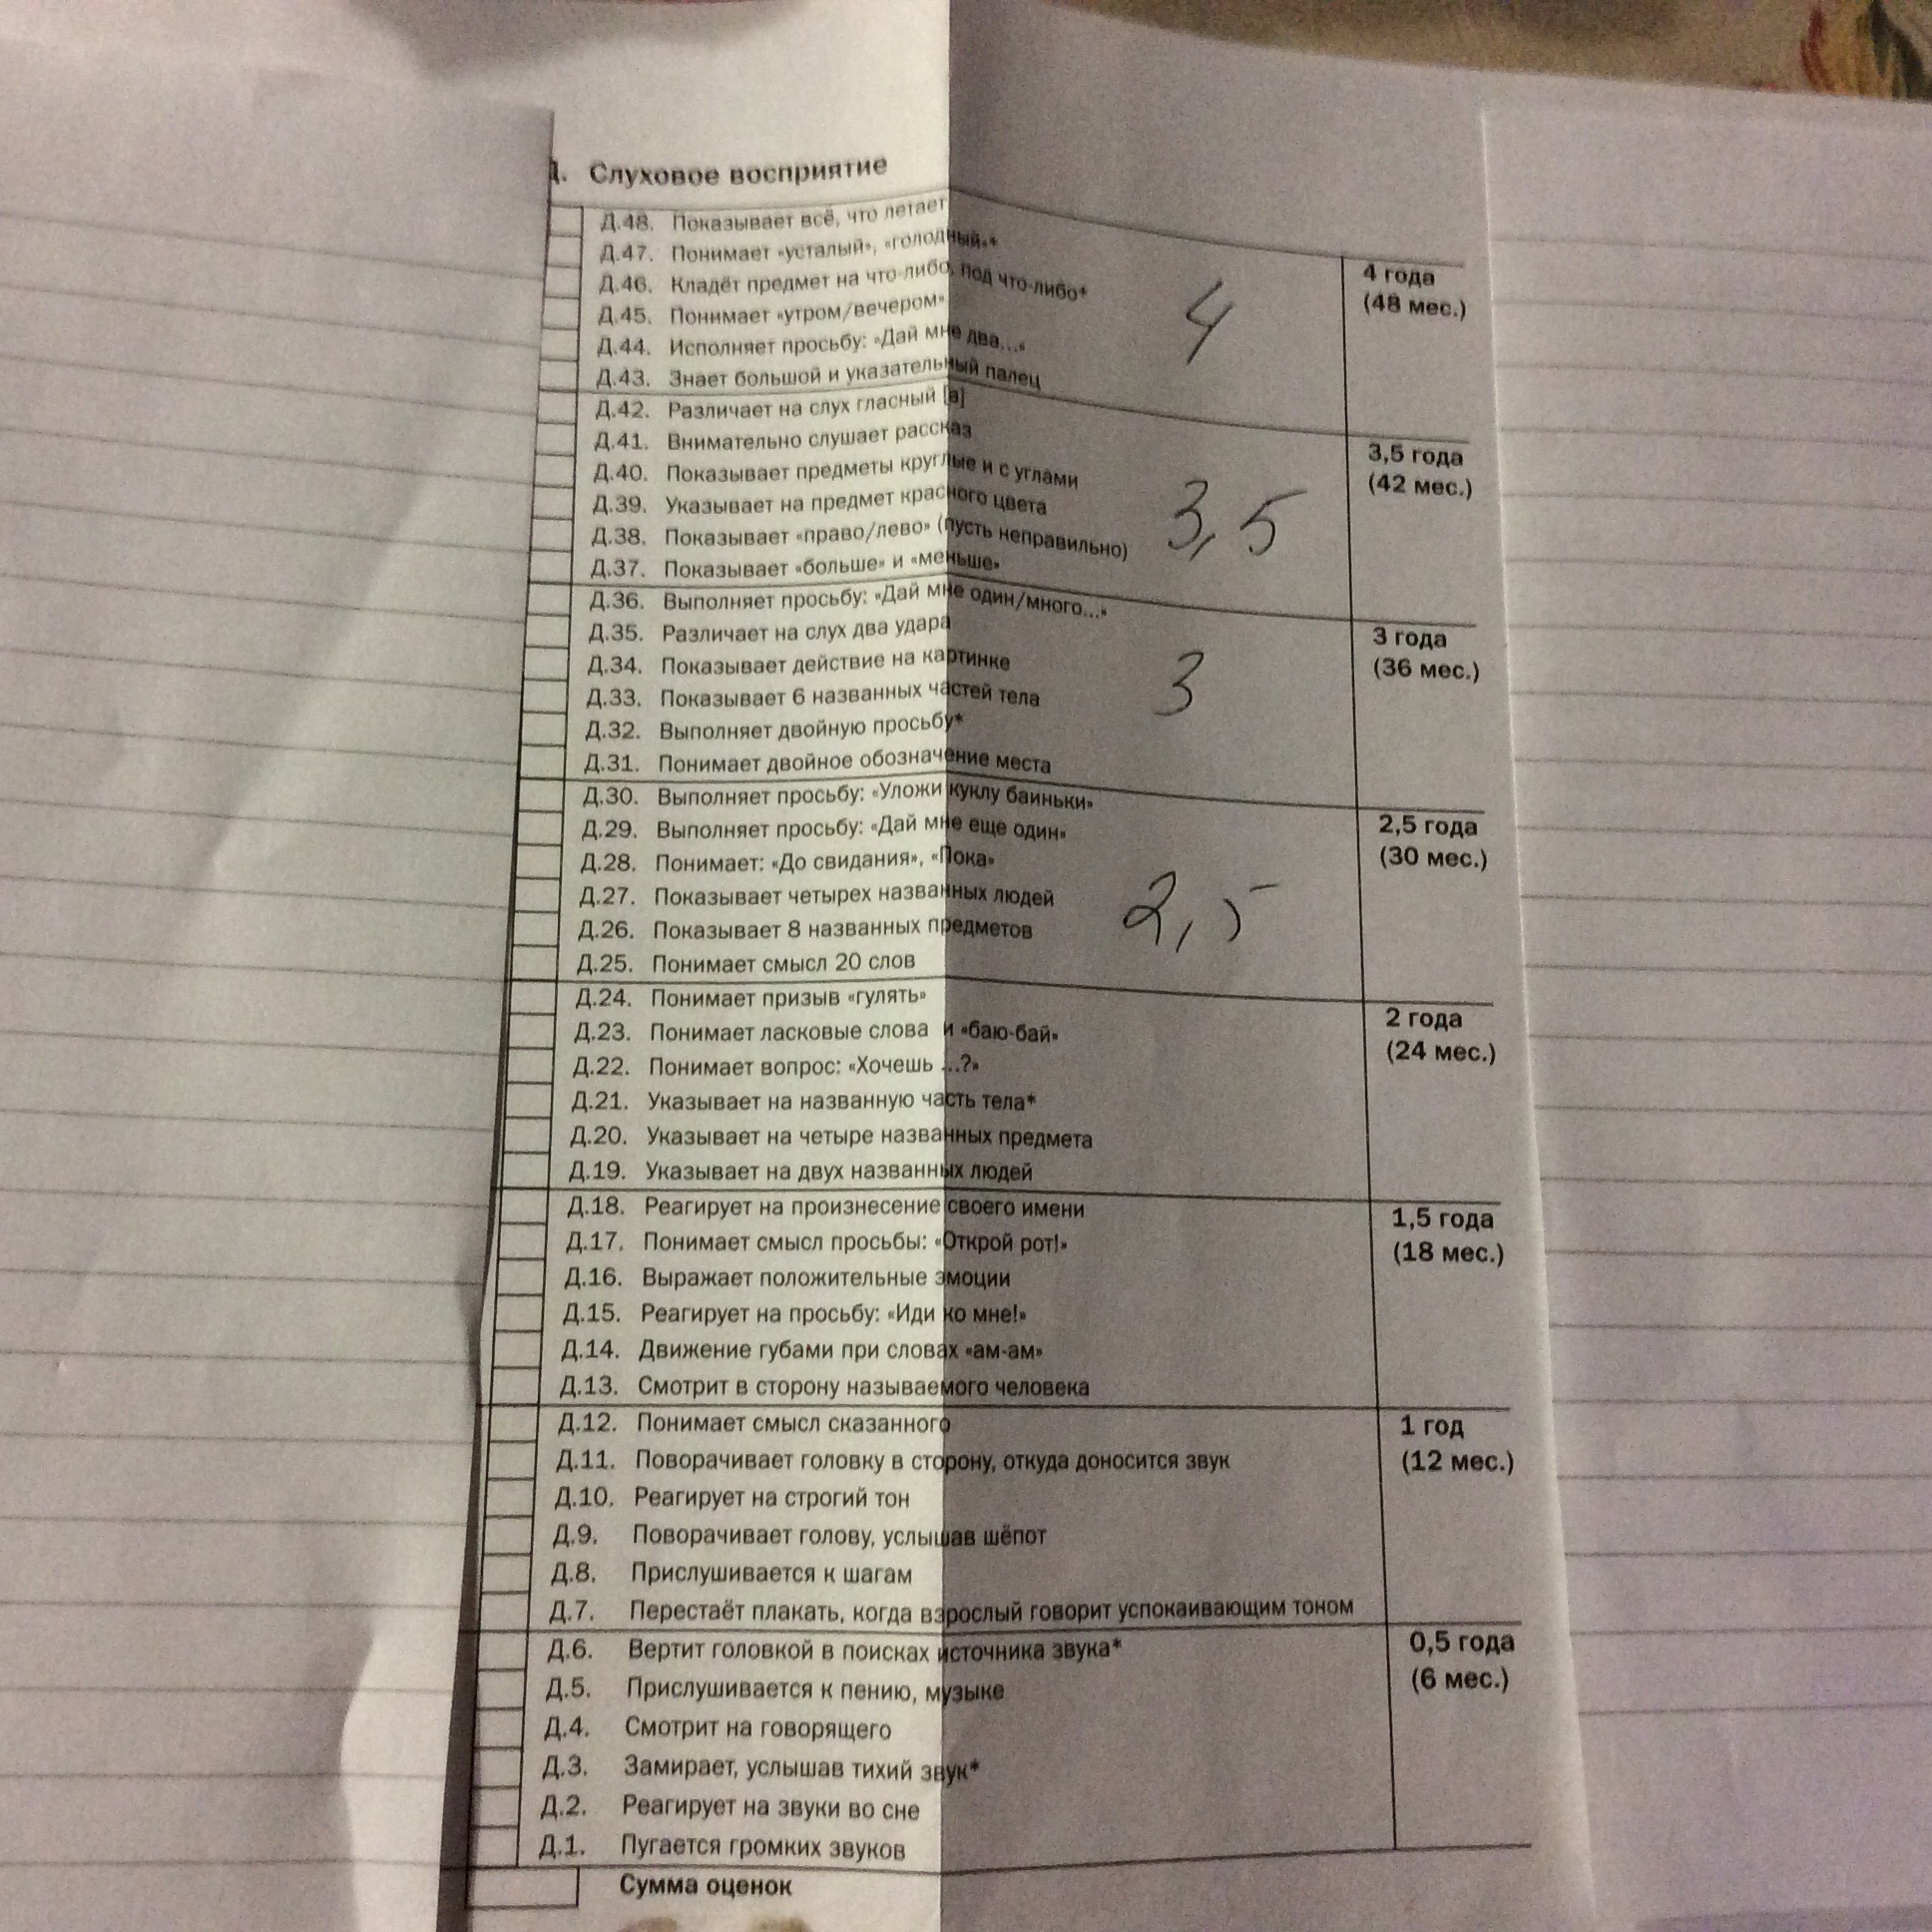 Д. Слуховое восприятие
Д.48. Показывает всё, что летает
Д.47. Понимает «усталый», «голодный»*
4 года
Д.46. Кладёт предмет на что-либо, под что-либо*
(48 мес.)
Д.45. Понимает «утром/вечером»
4
Д.44. Исполняет просьбу: «Дай мне два...»
Д.43. Знает большой и указательный палец
Д.42. Различает на слух гласный [а]
Д.41. Внимательно слушает рассказ
3,5 года
Д.40. Показывает предметы круглые и с углами
(42 мес.)
Д.39. Указывает на предмет красного цвета
3,5
Д.38. Показывает «право/лево» (пусть неправильно)
Д.37. Показывает «больше» и «меньше»
Д.36. Выполняет просьбу: «Дай мне один/много...»
Д.35. Различает на слух два удара
3 года
Д.34. Показывает действие на картинке
(36 мес.)
Д.33. Показывает 6 названных частей тела
3
Д.32. Выполняет двойную просьбу*
Д.31. Понимает двойное обозначение места
Д.30. Выполняет просьбу: «Уложи куклу баиньки»
Д.29. Выполняет просьбу: «Дай мне еще один»
2,5 года
Д.28. Понимает: «До свидания», «Пока»
(30 мес.)
Д.27. Показывает четырех названных людей
2,5
Д.26. Показывает 8 названных предметов
Д.25. Понимает смысл 20 слов
Д.24. Понимает призыв «гулять»
2 года
Д.23. Понимает ласковые слова и «баю-бай»
(24 мес.)
Д.22. Понимает вопрос: «Хочешь ...?»
Д.21. Указывает на названную часть тела*
Д.20. Указывает на четыре названных предмета
Д.19. Указывает на двух названных людей
Д.18. Реагирует на произнесение своего имени
1,5 года
Д.17. Понимает смысл просьбы: «Открой рот!»
(18 мес.)
Д.16. Выражает положительные эмоции
Д.15. Реагирует на просьбу: «Иди ко мне!»
Д.14. Движение губами при словах «ам-ам»
Д.13. Смотрит в сторону называемого человека
Д.12. Понимает смысл сказанного
1 год
Д.11. Поворачивает головку в сторону, откуда доносится звук
(12 мес.)
Д.10. Реагирует на строгий тон
Д.9. Поворачивает голову, услышав шёпот
Д.8. Прислушивается к шагам
Д.7. Перестаёт плакать, когда взрослый говорит успокаивающим тоном
Д.6. Вертит головкой в поисках источника звука*
0,5 года
Д.5. Прислушивается к пению, музыке
(6 мес.)
Д.4. Смотрит на говорящего
Д.3. Замирает, услышав тихий звук*
Д.2. Реагирует на звуки во сне
Д.1. Пугается громких звуков
Сумма оценок